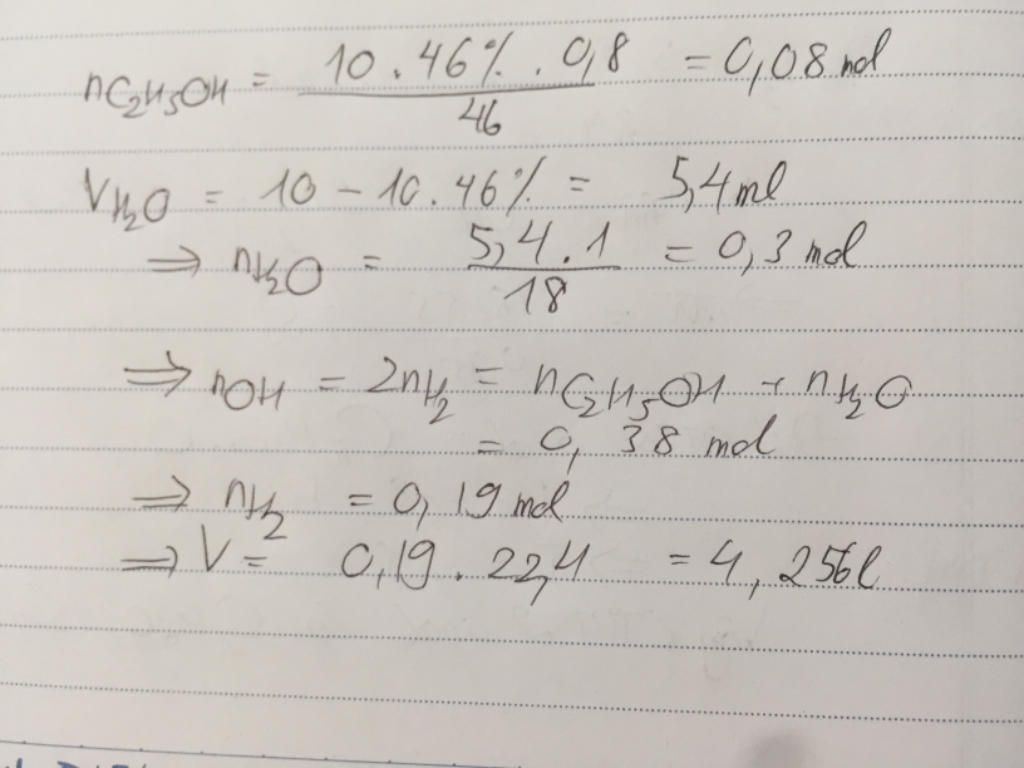 nC₂H₅OH = 10 . 46% . 0,8 / 46 = 0,08 mol
VH₂O = 10 - 10 . 46% = 5,4 ml
⇒ nH₂O = 5,4 . 1 / 18 = 0,3 mol
⇒ nOH = 2nH₂ = nC₂H₅OH + nH₂O
= 0,38 mol
⇒ nH₂ = 0,19 mol
⇒ V = 0,19 . 22,4 = 4,256l